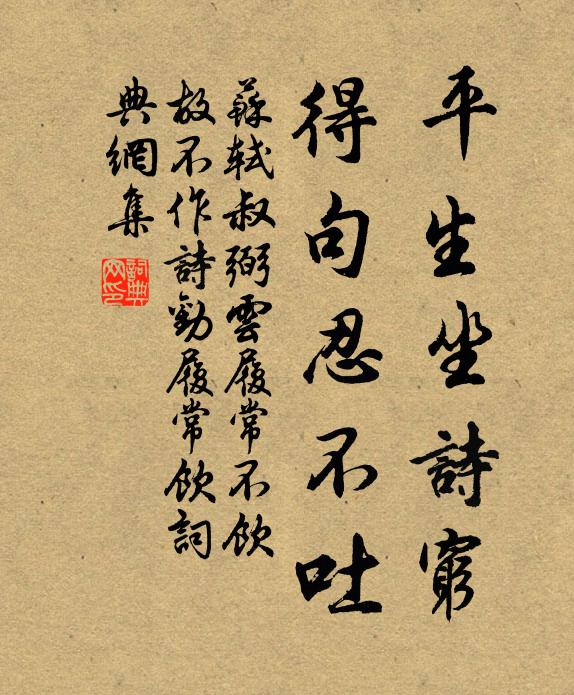 平生坐詩窮
得句忍不吐
蘇軾叔弼雲履常不飲
故不作詩勸履常飲詞
典網集
詞典
网印